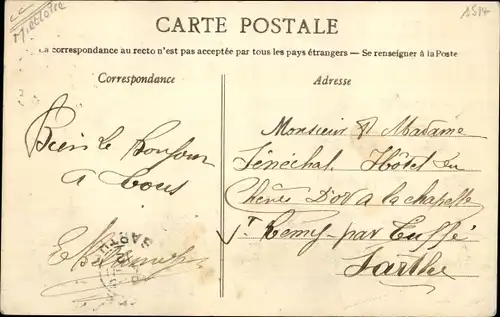 CARTE POSTALE
La correspondance au recto n'est pas acceptée par tous les pays étrangers — Se renseigner à la Poste
Correspondance
Adresse
Bien le Bonjour
a tous
Monsieur & Madame
Sénéchal. Hôtel du
Chêne D'or a la chapelle
St Remy par Tuffé
Sarthe
SARTHE